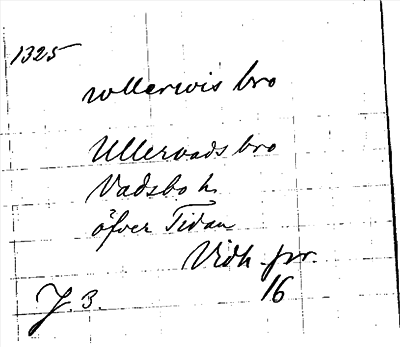 1325
wllerwis bro
Ullervads bro
Vadsbo h.
öfver Tidan
Vidh. pr.
16
J. 3.